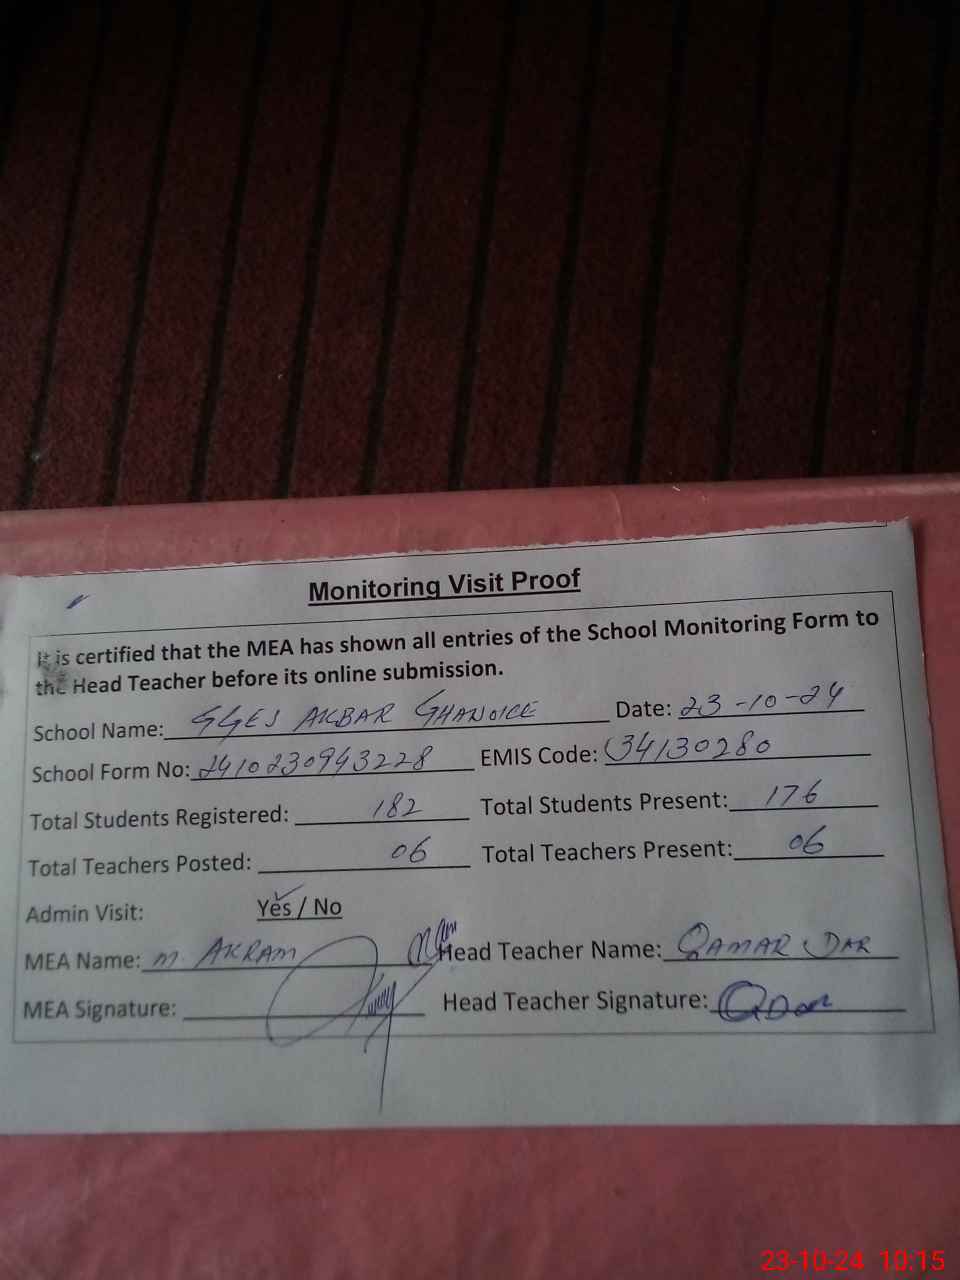 Monitoring Visit Proof
It is certified that the MEA has shown all entries of the School Monitoring Form to
the Head Teacher before its online submission.
School Name: GGES AKBAR GHANOKE Date: 23-10-24
School Form No: 2410230943228 EMIS Code: 34130280
Total Students Registered: 182 Total Students Present: 176
Total Teachers Posted: 06 Total Teachers Present: 06
Admin Visit: Yes / No
MEA Name: M. AKRAM Head Teacher Name: QAMAR DAR
MEA Signature: Head Teacher Signature: QDar
23-10-24 10:15